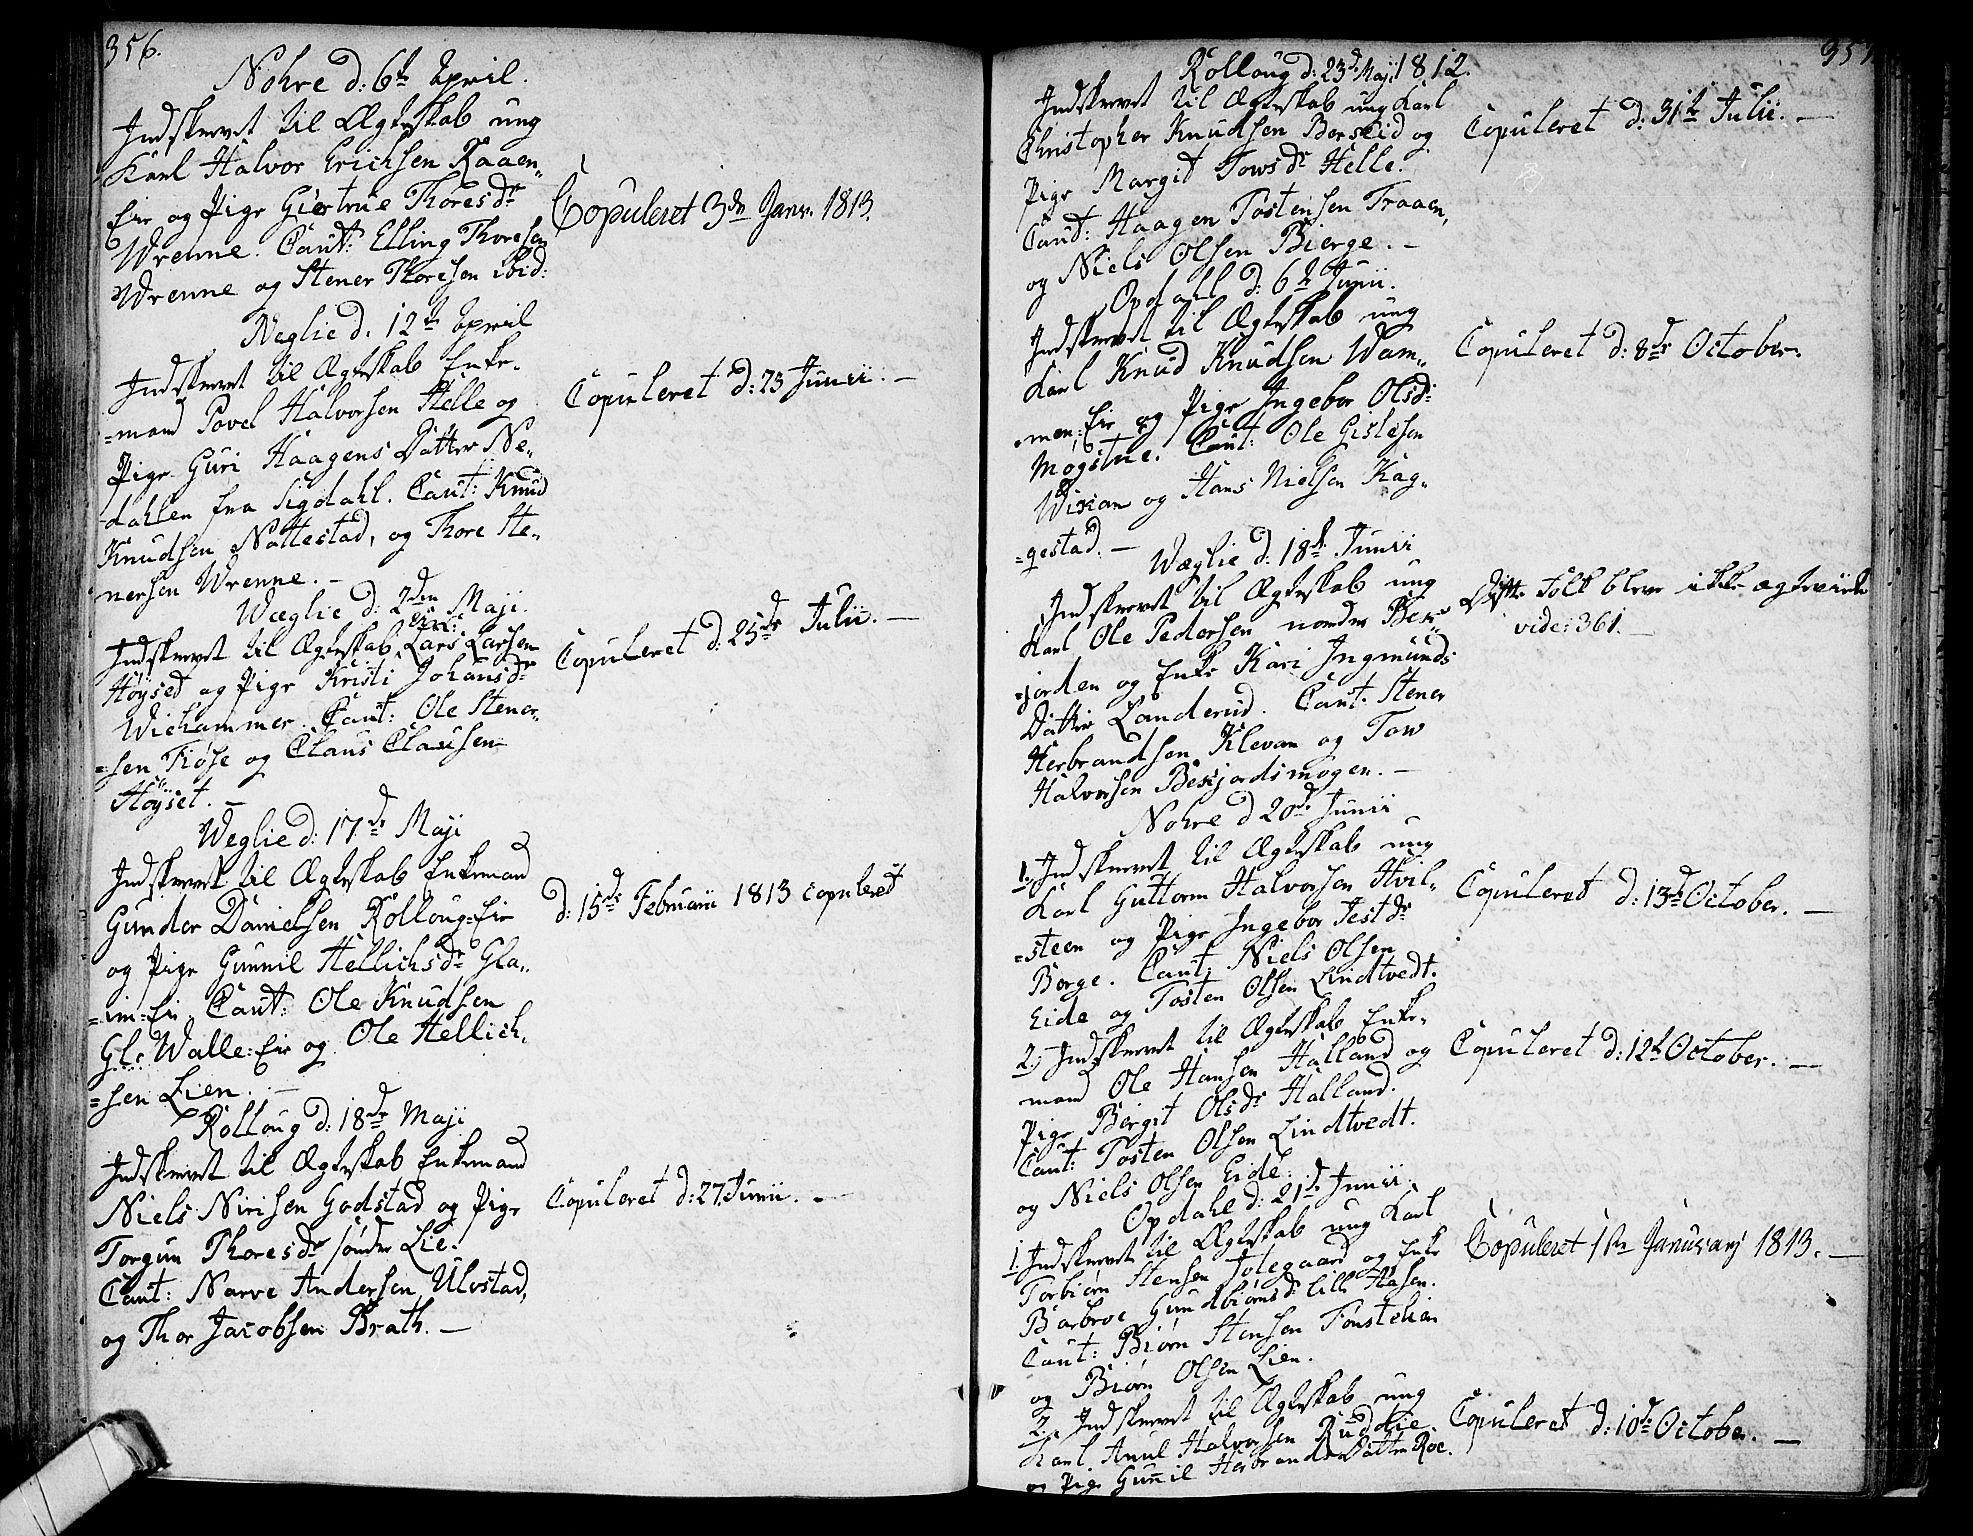 356.
Nohre d: 6te April.
Indskrevet til Ægteskab ung
Karl Halvor Erichsen Raaen„
Eie og Pige Giertrue Thoresdr
Wrenne. Caut: Elling Thoresen
Wrenne og Stener Thoresen ibid:
Copuleret 3de Janv. 1813.
Neglie d. 12te April
Indskrevet til Ægteskab Enke„
=mand Povel Halvorsen Helle og
Pige Guri Haagens Datter Ne„
dahlen fra Sigdahl. Caut: Knud
Knudsen Nattestad, og Thore Ste„
nersen Wrenne. –
Copuleret d: 23 Junii. –
Wæglie d: 2den Maji.
Indskrevet til Ægteskab Lars Larsen
Höyset og Pige Kristi Johansdr
Wichammer. Caut: Ole Stener„
=sen Fröse og Claus Clausen
Höyset. –
Copuleret d: 25de Julii. –
Weglie d: 17de Maji
Indskrevet til Ægteskab Enkemand
Gunder Danielsen Rolloug=Eie
og Pige Gunnil Hellichsdr Gla„
=im=Eie Caut: Ole Knudsen
Gl. Walle=Eie og Ole Hellich„
=sen Lien. –
d: 15de Februarii 1813 copuleret
Rolloug d: 18de Maji
Indskrevet til Ægteskab Enkemand
Niels Nirisen Godstad og Pige
Torgun Thoresdr sönder Lie.
Caut: Narve Andersen Ulvstad,
og Thor Jacobsen Brath. –
Copuleret d: 27 Junii. –
357
Rolloug d: 23de Maji 1812.
Indskrevet til Ægteskab ung Karl
Christopher Knudsen Berskid og
Pige Margit Towsdr Helle.
Caut: Haagen Tostensen Traaen,
og Niels Olsen Bierge. –
Copuleret d. 31te Julii. –
Opdahl d: 6te Junii.
Indskrevet til Ægteskab ung
Karl Knud Knudsen Wam„
=men=Eie og Pige Ingebor Olsd:
Mogstue. Caut: Ole Gislesen
Wisian og Hans Nielsen Kag„
=gestad. –
Copuleret d: 8de October.
Wæglie d: 18de Junii
Indskrevet til Ægteskab ung
Karl Ole Pedersen nordre Bex„
=jorden og Enke Kari Ingmunds
Datter Landerud. Caut: Stener
Herbrandsen Klevan og Tow
Halvorsen Bexjordsmogen. –
Disse Folk blev ikke ægteviede
vide: 361. –
Nohre d 20de Junii
1. Indskrevet til Ægteskab ung
Karl Guttorm Halvorsen Hvil„
=steen og Pige Ingebor Jestdr
Borge. Caut: Niels Olsen
Eide og Tosten Olsen Lindtvedt.
Copuleret d: 13de October. –
2. Indskrevet til Ægteskab Enke„
mand Ole Hansen Halland og
Pige Bergit Olsdr Halland.
Caut: Tosten Olsen Lindtvedt.
og Niels Olsen Eide.
Copuleret d: 12te October. –
Opdahl d: 21de Junii.
1. Indskrevet til Ægteskab ung Karl
Torbiörn Stensen Jolegaard og Enke
Barbroe Gundbiörnsdr lille Haasen.
Caut: Biörn Stensen Fönstelien
og Biörn Olsen Lien.
Copuleret 1ste Januarij 1813. –
2. Indskrevet til Ægteskab ung
Karl Anul Halvorsen Rudslie
og Pige Gunnil Herbrands Datter Roe.
Copuleret d: 10de October. –